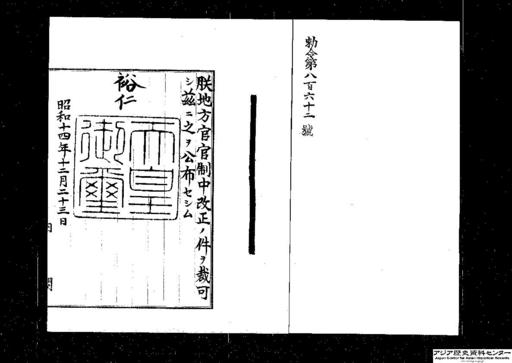 勅令第八百六十二號
朕地方官官制中改正ノ件ヲ裁可
シ茲ニ之ヲ公布セシム
裕仁
天皇
御璽
昭和十四年十二月二十三日
内閣
アジア歴史資料センター
Japan Center for Asian Historical Records